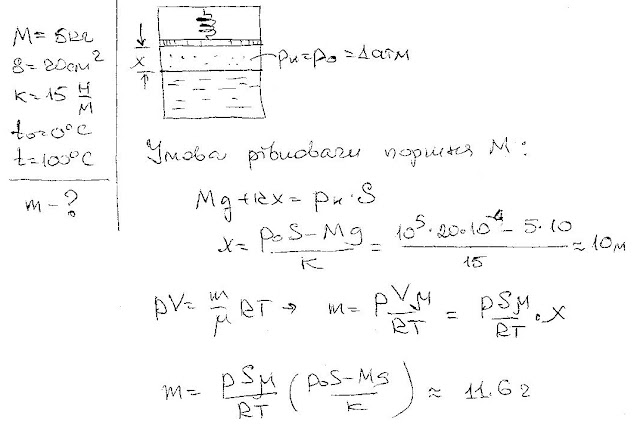 M = 5кг
S = 20см²
k = 15 Н/М
t₀ = 0°C
t = 100°C
m - ?
x
pн = p₀ = 1атм
Умова рівноваги поршня M:
Mg + kx = pн · S
x = (p₀S - Mg)/k = (10⁵ · 20 · 10⁻⁴ - 5 · 10)/15 ≈ 10м
pV = m/μ RT → m = pVμ/RT = pSμ/RT · x
m = pSμ/RT (p₀S - Mg/k) ≈ 11.6г